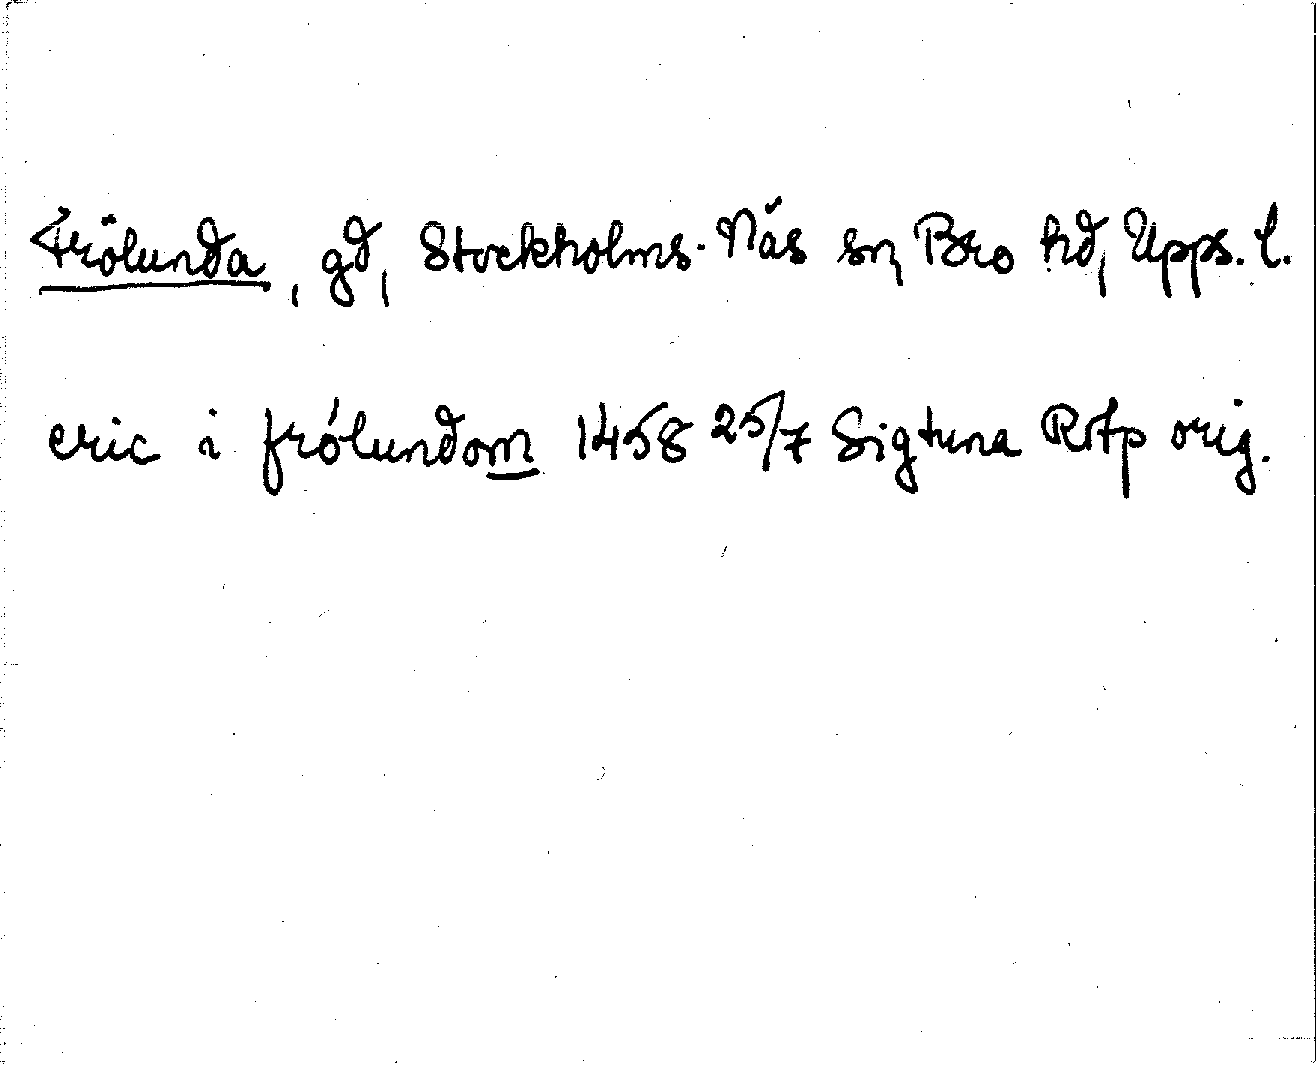 Frölunda, gd, Stockholms-Näs sn, Bro hd, Upps. l.
eric i frólundom 1458 25/7 Sigtuna RAp orig.